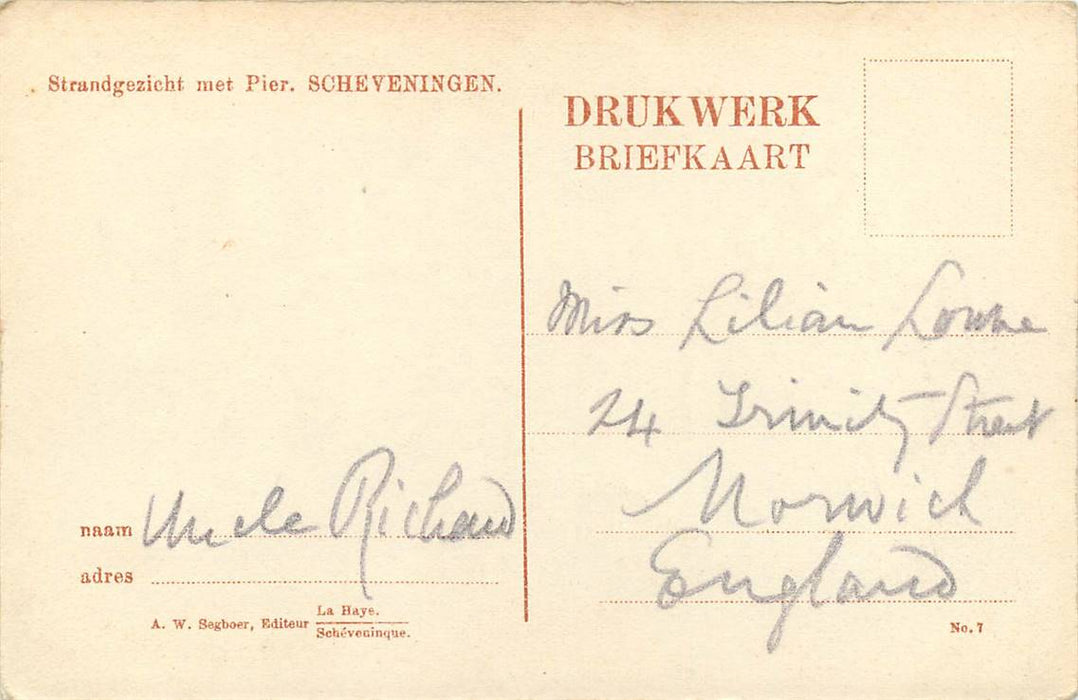 Strandgezicht met Pier. SCHEVENINGEN.
DRUKWERK
BRIEFKAART
Miss Lilian
24 Trinity Street
Norwich
England
naam Uncle Richard
adres
A. W. Segboer, Editeur
La Haye.
Schéveninque.
No. 7